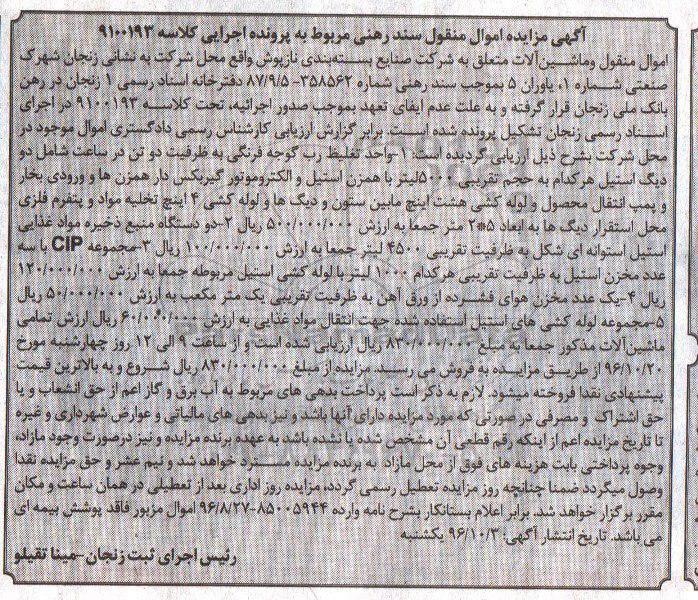 آگهی مزایده اموال منقول سند رهنی مربوط به پرونده اجرایی کلاسه ۹۱۰۰۱۹۳
اموال منقول وماشین‌آلات متعلق به شرکت صنایع بسته‌بندی نازپوش واقع محل شرکت به نشانی زنجان شهرک
صنعتی شماره ۱، یاوران ۵ بموجب سند رهنی شماره ۳۵۸۵۶۲- ۸۷/۹/۵ دفترخانه اسناد رسمی ۱ زنجان در رهن
بانک ملی زنجان قرار گرفته و به علت عدم ایفای تعهد بموجب صدور اجرائیه، تحت کلاسه ۹۱۰۰۱۹۳ در اجرای
اسناد رسمی زنجان تشکیل پرونده شده است. برابر گزارش ارزیابی کارشناس رسمی دادگستری اموال موجود در
محل شرکت بشرح ذیل ارزیابی گردیده است: ۱-واحد تغلیظ رب گوجه فرنگی به ظرفیت دو تن در ساعت شامل دو
دیگ استیل هرکدام به حجم تقریبی ۵۰۰۰لیتر با همزن استیل و الکتروموتور گیربکس دار همزن ها و ورودی بخار
و پمپ انتقال محصول و لوله کشی هشت اینچ مابین ستون و دیگ ها و لوله کشی ۴ اینچ تخلیه مواد و پنفرم فلزی
محل استقرار دیگ ها به ابعاد ۵*۲ متر جمعا به ارزش ۵۰۰/۰۰۰/۰۰۰ ریال ۲-دو دستگاه منبع ذخیره مواد غذایی
استیل استوانه ای شکل به ظرفیت تقریبی ۴۵۰۰ لیتر جمعا به ارزش ۱۰۰/۰۰۰/۰۰۰ ریال ۳-مجموعه CIP با سه
عدد مخزن استیل به ظرفیت تقریبی هرکدام ۱۰۰۰ لیتر با لوله کشی استیل مربوطه جمعا به ارزش ۱۲۰/۰۰۰/۰۰۰
ریال ۴-یک عدد مخزن هوای فشرده از ورق آهن به ظرفیت تقریبی یک متر مکعب به ارزش ۵۰/۰۰۰/۰۰۰ ریال
۵-مجموعه لوله کشی های استیل استفاده شده جهت انتقال مواد غذایی به ارزش ۶۰/۰۰۰/۰۰۰ ریال ارزش تمامی
ماشین‌آلات مذکور جمعا به مبلغ ۸۳۰/۰۰۰/۰۰۰ ریال ارزیابی شده است و از ساعت ۹ الی ۱۲ روز چهارشنبه مورخ
۹۶/۱۰/۲۰ از طریق مزایده به فروش می رسید. مزایده از مبلغ ۸۳۰/۰۰۰/۰۰۰ ریال شروع و به بالاترین قیمت
پیشنهادی نقدا فروخته میشود. لازم به ذکر است پرداخت بدهی های مربوط به آب برق و گاز اعم از حق انشعاب و یا
حق اشتراک و مصرفی در صورتی که مورد مزایده دارای آنها باشد و نیز بدهی های مالیاتی و عوارض شهرداری و غیره
تا تاریخ مزایده اعم از اینکه رقم قطعی آن مشخص شده یا نشده باشد به عهده برنده مزایده و نیز درصورت وجود مازاد،
وجوه پرداختی بابت هزینه های فوق از محل مازاد به برنده مزایده مسترد خواهد شد و نیم عشر و حق مزایده نقدا
وصول میگردد ضمنا چنانچه روز مزایده تعطیل رسمی گردد، مزایده روز اداری بعد از تعطیلی در همان ساعت و مکان
مقرر برگزار خواهد شد. برابر اعلام بستانکار بشرح نامه وارده ۸۵۰۰۵۹۴۴-۹۶/۸/۲۷ اموال مزبور فاقد پوشش بیمه ای
می باشد. تاریخ انتشار آگهی: ۹۶/۱۰/۳ یکشنبه
رئیس اجرای ثبت زنجان-مینا تقیلو